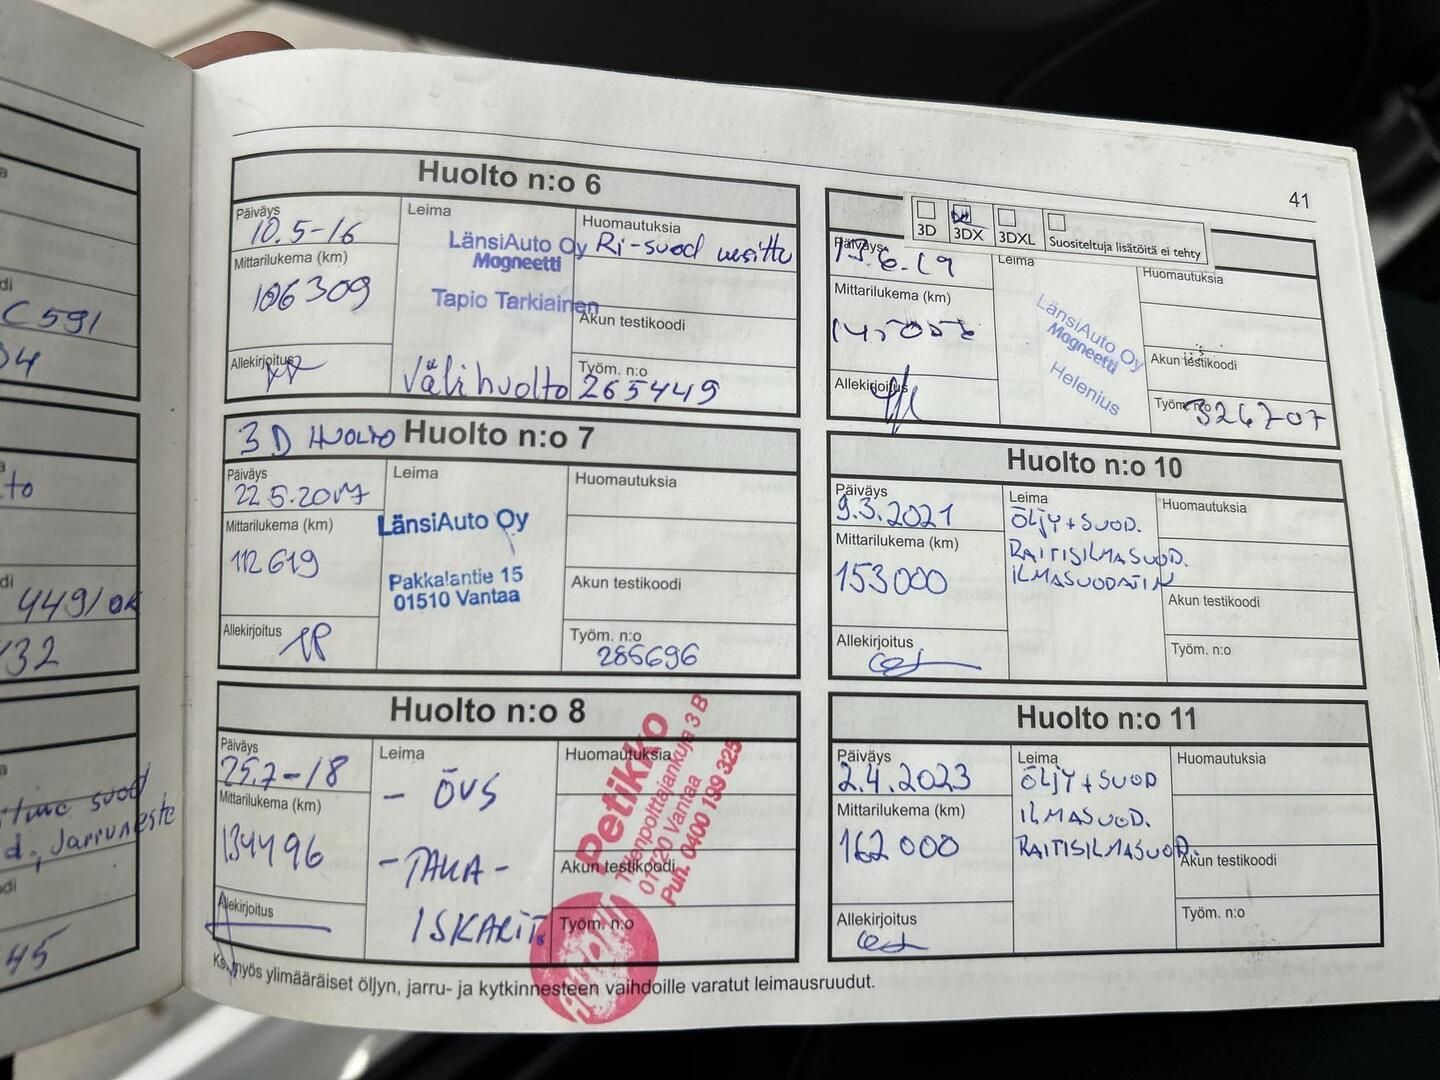 C 591
04
to
4491 OK
132
suod
d., Jarruneste
45
41
Huolto n:o 6
Päiväys
10.5-16
Mittarilukema (km)
106309
Allekirjoitus
Leima
LänsiAuto Oy
Magneetti
Tapio Tarkiainen
Välihuolto
Huomautuksia
Ri-suod
Akun testikoodi
Työm. n:o
265449
3D HUOLTO Huolto n:o 7
Päiväys
22.5.2017
Mittarilukema (km)
112619
Allekirjoitus
Leima
LänsiAuto Oy
Pakkalantie 15
01510 Vantaa
Huomautuksia
Akun testikoodi
Työm. n:o
286696
Huolto n:o 8
Päiväys
25.7-18
Mittarilukema (km)
134496
Allekirjoitus
Leima
- ÖVS
- TAKA -
ISKARIT
Huomautuksia
Akun testikoodi
Työm. n:o
Petikko
Tiilenpolttajankuja 3 B
01720 Vantaa
Puh. 0400 199 325
3D
3DX
3DXL
Suositeltuja lisätöitä ei tehty
Päiväys
13.6.19
Mittarilukema (km)
Allekirjoitus
Leima
LänsiAuto Oy
Magneetti
Helenius
Huomautuksia
Akun testikoodi
Työm. n:o
326707
Huolto n:o 10
Päiväys
9.3.2021
Mittarilukema (km)
153000
Allekirjoitus
Leima
ÖLJY + SUOD.
RAITISILMASUOD.
ILMASUODATIN
Huomautuksia
Akun testikoodi
Työm. n:o
Huolto n:o 11
Päiväys
2.4.2023
Mittarilukema (km)
162 000
Allekirjoitus
Leima
ÖLJY + SUOD
ILMASUOD.
RAITISILMASUOD.
Huomautuksia
Akun testikoodi
Työm. n:o
Ks. myös ylimääräiset öljyn, jarru- ja kytkinnesteen vaihdoille varatut leimausruudut.